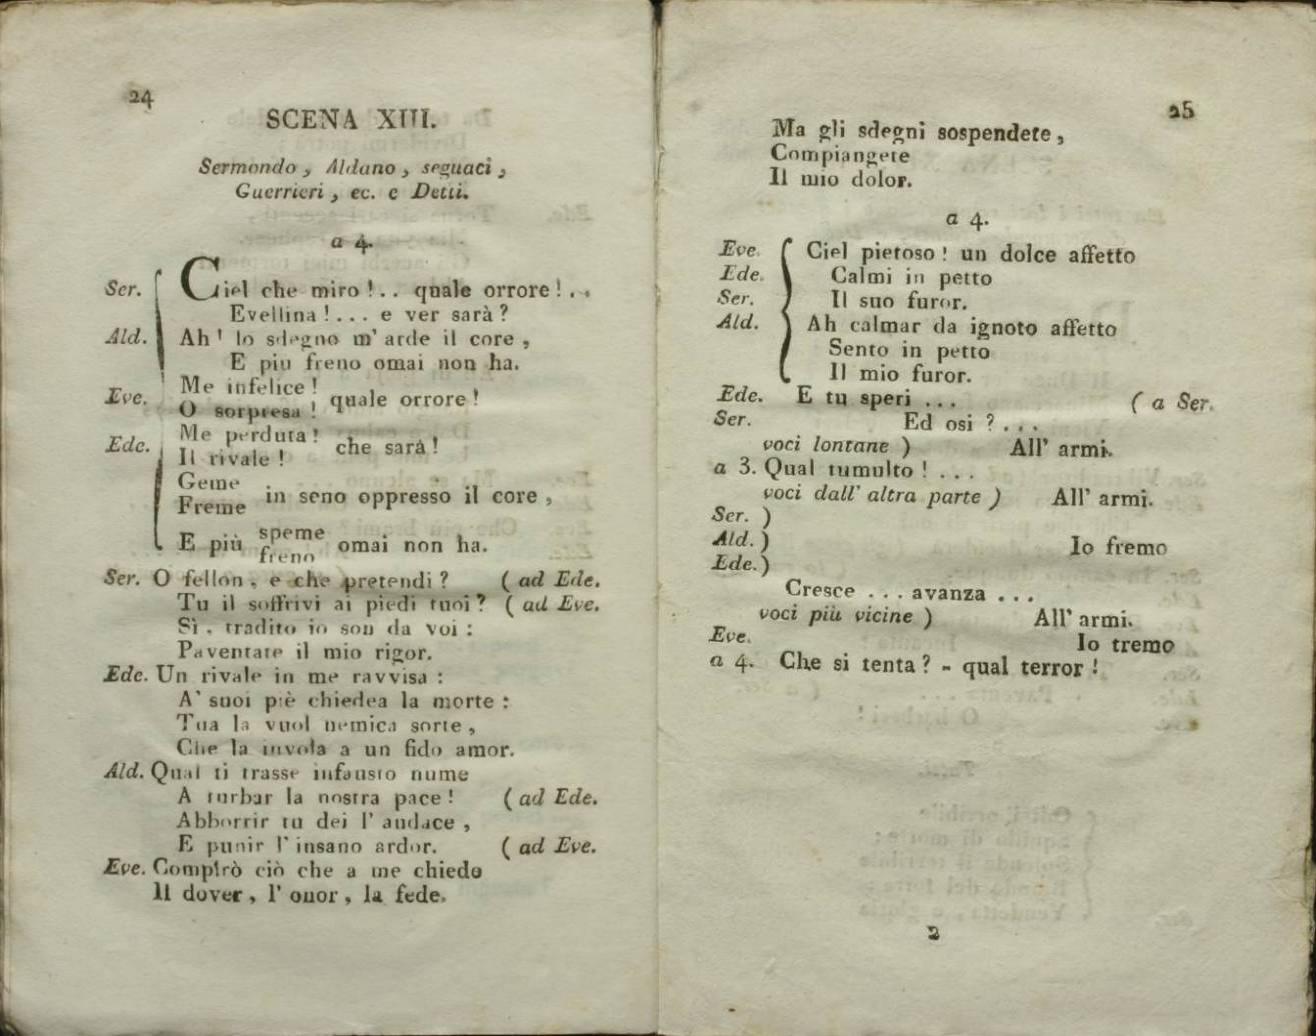 24
SCENA XIII.
Sermondo, Aldano, seguaci,
Guerrieri, ec. e Detti.
a 4.
Ser. Ciel che miro!.. quale orrore!..
Evellina!... e ver sarà?
Ald. Ah! lo sdegno m' arde il core,
E piu freno omai non ha.
Eve. Me infelice!
O sorpresa! quale orrore!
Ede. Me perduta!
Il rivale! che sarà!
Geme
Freme in seno oppresso il core,
E più speme
freno omai non ha.
Ser. O fellon, e che pretendi? (ad Ede.
Tu il soffrivi ai piedi tuoi? (ad Eve.
Sì, tradito io son da voi:
Paventate il mio rigor.
Ede. Un rivale in me ravvisa:
A' suoi piè chiedea la morte:
Tua la vuol nemica sorte,
Che la invola a un fido amor.
Ald. Qual ti trasse infausto nume
A turbar la nostra pace! (ad Ede.
Abborrir tu dei l' audace,
E punir l' insano ardor. (ad Eve.
Eve. Compirò ciò che a me chiede
Il dover, l' onor, la fede.
25
Ma gli sdegni sospendete,
Compiangete
Il mio dolor.
a 4.
Eve. Ciel pietoso! un dolce affetto
Ede. Calmi in petto
Ser. Il suo furor.
Ald. Ah calmar da ignoto affetto
Sento in petto
Il mio furor.
Ede. E tu speri ... (a Ser.
Ser. Ed osi?...
voci lontane) All' armi.
a 3. Qual tumulto!...
voci dall' altra parte) All' armi.
Ser. )
Ald. ) Io fremo
Ede. )
Cresce ... avanza ...
voci più vicine) All' armi.
Eve. Io tremo
a 4. Che si tenta? - qual terror!
2